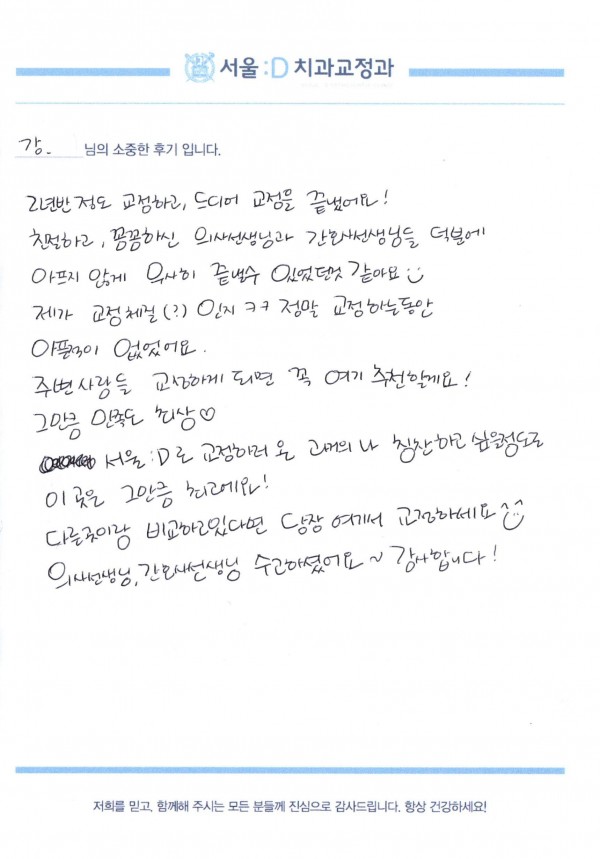 서울 :D 치과교정과
강. 님의 소중한 후기 입니다.
2년반 정도 교정하고, 드디어 교정을 끝냈어요!
친절하고, 꼼꼼하신 의사선생님과 간호사선생님들 덕분에
아프지 않게 무사히 끝낼수 있었던것 같아요
제가 교정체질(?) 인지 ㅋㅋ 정말 교정하는동안
아픔적이 없었어요.
주변사람들 교정하게 되면 꼭 여기 추천할게요!
그만큼 만족도 최상♡
서울 :D로 교정하러 온 과거의 나 칭찬하고 싶을정도로
이곳은 그만큼 최고에요!
다른곳이랑 비교하고있다면 당장 여기서 교정하세요^^
의사선생님, 간호사선생님 수고하셨어요~ 감사합니다!
저희를 믿고, 함께해 주시는 모든 분들께 진심으로 감사드립니다. 항상 건강하세요!